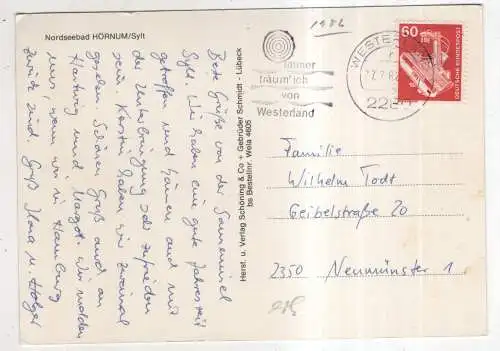 Nordseebad HÖRNUM/Sylt
Beste Grüße von der Sonneninsel
Sylt. Wir haben eine gute Jahreszeit
getroffen und können auch mit
der Unterbringung sehr zufrieden
sein. Kerstin haben wir zweimal
gesehen. Schönen Gruß auch an
Hartwig und Margot. Wir melden
uns, wenn wir in Hamburg
zurück sind. Gruß Ilona u. Holger
Herst. u. Verlag Schöning & Co + Gebrüder Schmidt - Lübeck
bs Bestellnr. Wela 4605
Immer
träum' ich
von
Westerland
60
DEUTSCHE BUNDESPOST
Familie
Wilhelm Todt
Geibelstraße 20
2350 Neumünster 1